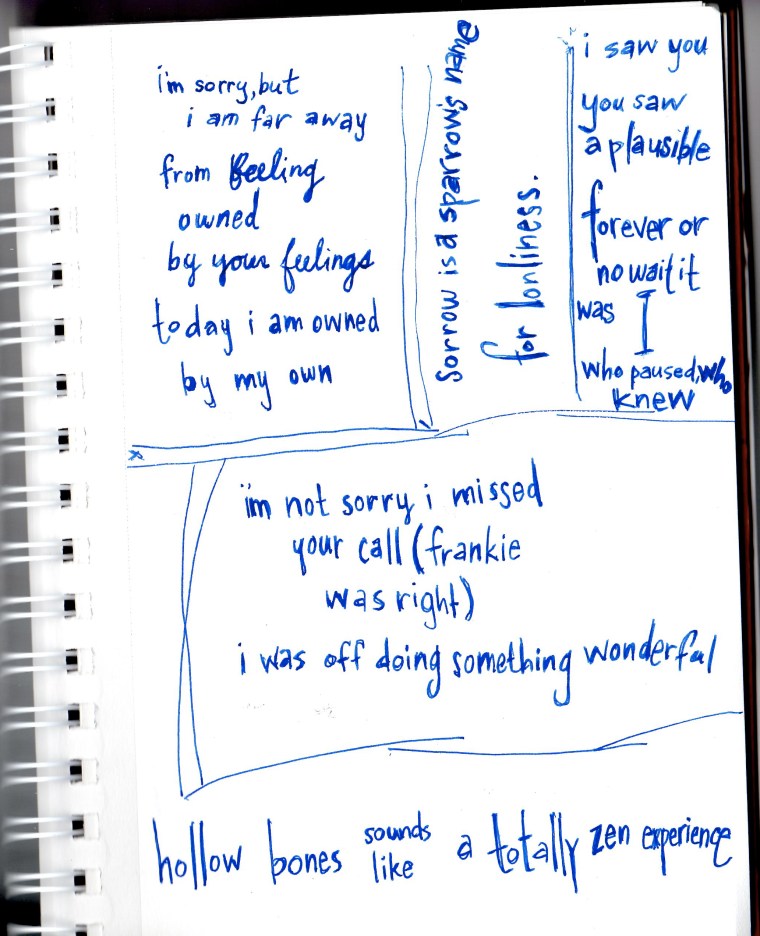 i'm sorry, but
i am far away
from feeling
owned
by your feelings
today i am owned
by my own
sorrow is a sparrow's name
for lonliness.
i saw you
you saw
a plausible
forever or
no wait it
was I
who paused, who
knew
i'm not sorry i missed
your call (frankie
was right)
i was off doing something wonderful
hollow bones sounds like a totally zen experience